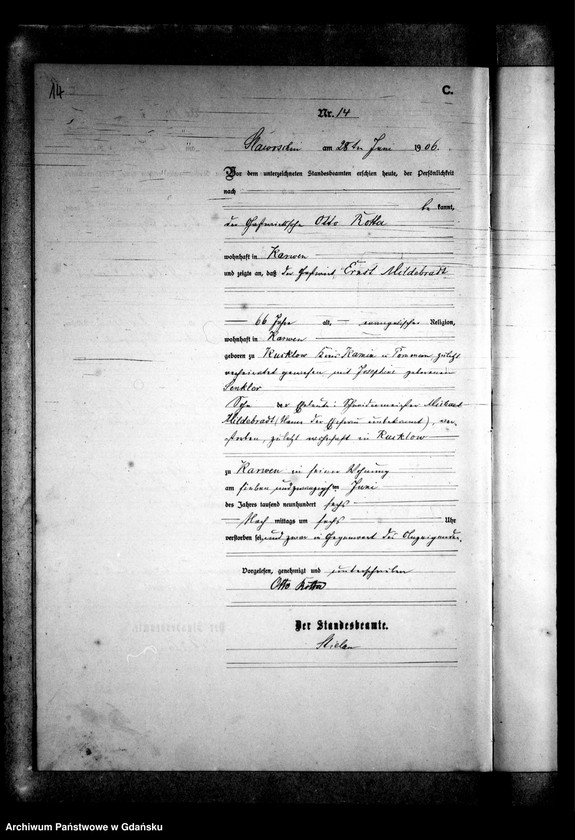 14
C.
Nr. 14
am 28ten Juni 1906.
Vor dem unterzeichneten Standesbeamten erschien heute, der Persönlichkeit
nach
be kannt,
der Otto Rotta
wohnhaft in Karwen
und zeigte an, daß der Gastwirt Ernst Mildebradt
66 Jahre alt, evangelischer Religion,
wohnhaft in Karwen
geboren zu Kusklow Kreis Kamin in Pommern, zuletzt
verheiratet gewesen mit Josephine geborenen
Senkler
Sohn der Eheleute: Schneidermeister Michael
Mildebradt (Name der Ehefrau unbekannt), ver
storben, zuletzt wohnhaft in Kusklow
zu Karwen in seiner Wohnung
am sieben und zwanzigsten Juni
des Jahres tausend neunhundert sechs
Nach mittags um sechs Uhr
verstorben sei, und zwar in Gegenwart des Anzeigenden.
Vorgelesen, genehmigt und unterschrieben
Otto Rotta
Der Standesbeamte.
Archiwum Państwowe w Gdańsku